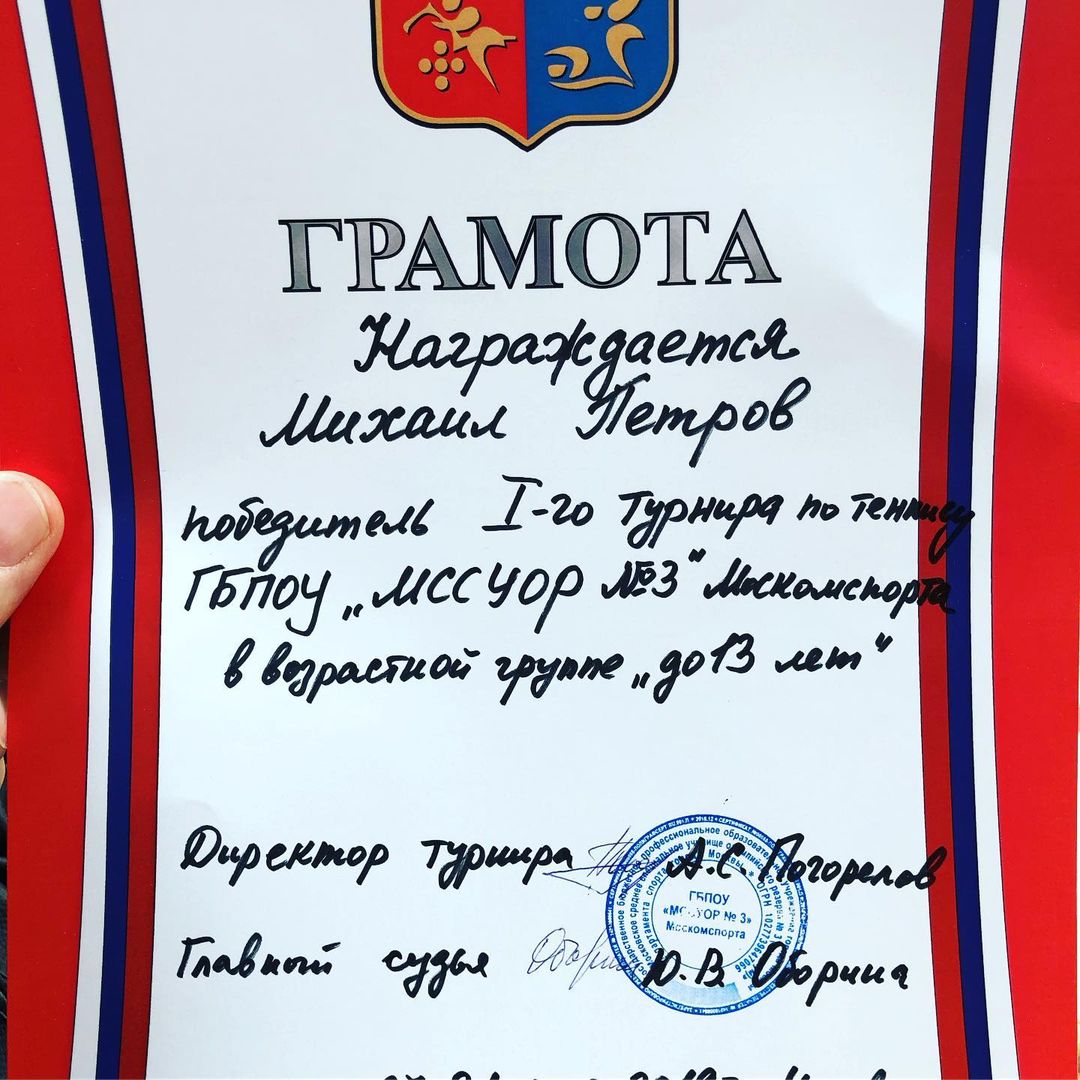 ГРАМОТА
Награждается
Михаил Петров
победитель I-го турнира по теннису
ГБПОУ „МССУОР №3" Москомспорта
в возрастной группе „до 13 лет"
Директор турнира А.С. Погорелов
ГБПОУ
«МССУОР № 3»
Москомспорта
Главный судья Ю.В. Оборина